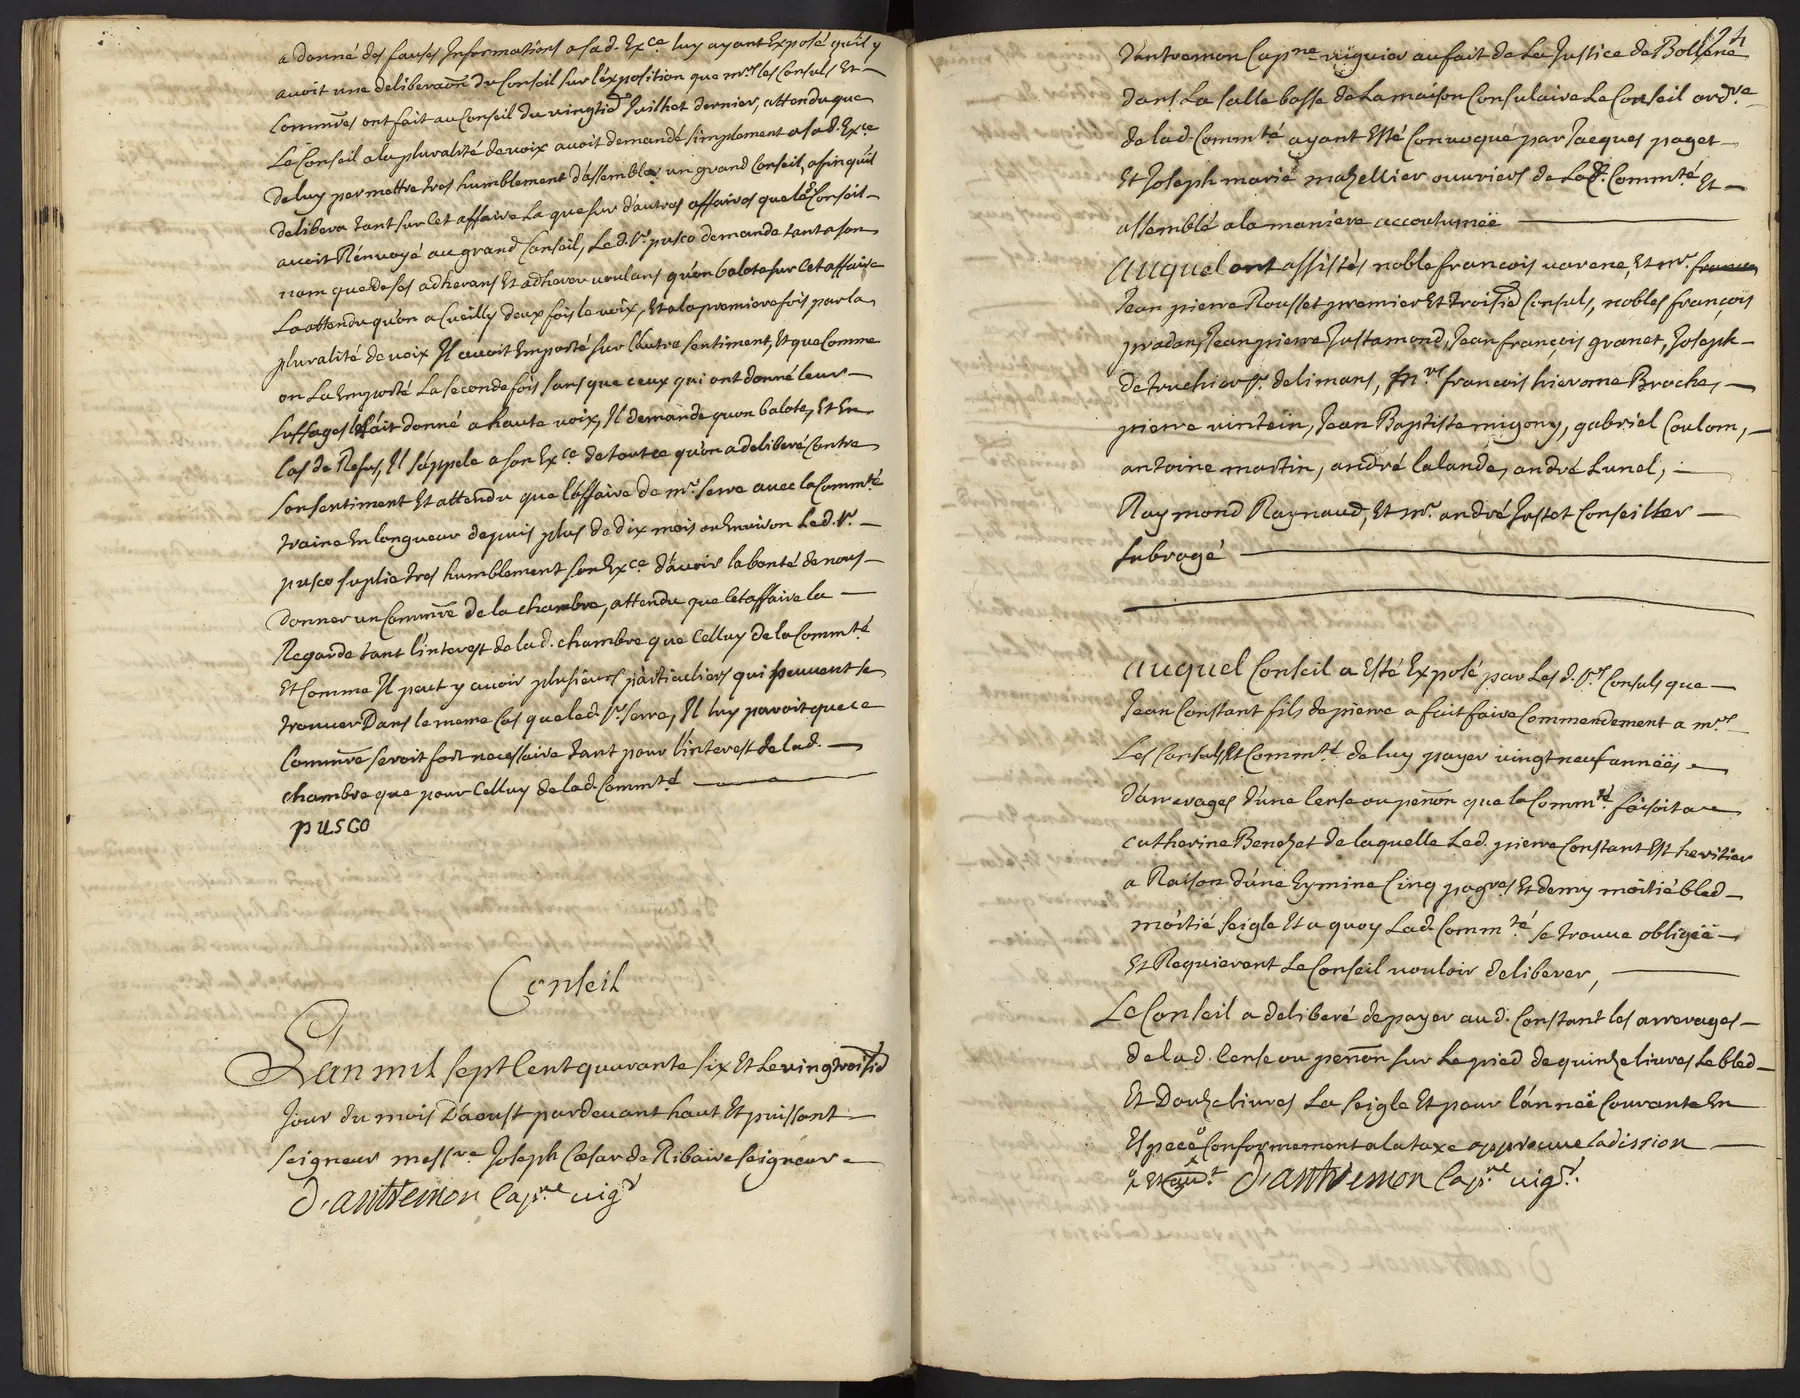 a donné des fauses Informations a sad. Ex.ce luy ayant Exposé qu'il y
avoit une deliberaõn du Conseil sur l'exposition que m.rs les Consuls Et
Comm̃res ont fait au Conseil du vingtie Juilhet dernier, attendu que
Le Conseil a la pluralité de voix avoit demandé simplement a sad. Ex.ce
de luy permettre tres humblement d'assembler un grand Conseil, afin qu'il
delibera tant sur Cet affaire La que sur d'autres affaires que le Conseil
avoit Rénvoyé au grand Conseil, Le d. s.r pusco demande tant a son
nom que de ses adherans Et adherer voulans qu'on balote sur Cet affaire
La attendu qu'on a Cueilly deux fois le voix, Et a la premiere fois par la
pluralité de voix Il avoit Emporté sur l'autre sentiment, Et que Comme
on La Emporté La seconde fois sans que ceux qui ont donné leur
suffrages l'ait donné a haute voix, Il demande quon balote, Et En
Cas de Refus, Il s'appele a son Ex.ce de tout ce qu'on a deliberé Contre
son sentiment Et attendu que l'affaire de m.r serre avec la Comm.té
traine En longueur depuis plus de dix mois ou Environ Le d. s.r
pusco suplie tres humblement son Ex.ce d'avoir la bonté de nous
donner un Comm̃re de la chambre, attendu que Cet affaire la
Regarde tant l'interest de lad. chambre que Celluy de la Comm.té
Et Comme Il peut y avoir plusieurs particuliers qui peuvent se
trouver Dans le meme Cas que led. s.r serre, Il luy paroit que ce
Comm̃re seroit fort necessaire tant pour l'interest de lad.
chambre que pour Celluy de lad. Comm.té
pusco
Conseil
L'an mil sept Cent quarante six Et Le vingtroisie
Jour du mois D'aoust pardevant haut Et puissant
seigneur mess.re Joseph Cæsar de Ribaire seigneur
D'antremon Cap.ne vig.r
124
d'antremon Cap.ne viguier au fait de La Justice de Bollene
dans La salle basse de La maison Consulaire Le Conseil ord.re
de lad. Comm.té ayant Esté Convoqué par Jacques paget
Et Joseph marie mazellier ouvriers de Lad. Comm.té Et
assemblé a la maniere accoutumée
Auquel ont assistés noble francois varene, Et m.r
Jean pierre Rousset premier Et troisie Consuls, nobles françois
pradan, Jean pierre Justamond, Jean françois granet, Joseph
de truchier s.r de limans, m.rs francois hierome Broche,
pierre vintein, Jean Baptiste migony, gabriel Coulom,
antoine martin, andré lalande, andré Lunel,
Raymond Raynaud, Et m.r andré Justet Conseiller
subrogé
Auquel Conseil a Esté Exposé par Les d. s.rs Consuls que
Jean Constant fils de pierre a fait faire Commendement a m.rs
Les Consuls Et Comm.té de luy payer vingt neuf années
d'arrerages d'une Cense ou peñon que la Comm.té faisoit a
Catherine Benezet de laquelle Led. pierre Constant Est heritier
a Raison d'une Eymine Cinq pognes Et demy moitié bled
moitié seigle Et a quoy Lad. Comm.té se trouve obligée
Et Requierent Le Conseil vouloir deliberer,
Le Conseil a deliberé de payer au d. Constant les arrerages
de lad. Cense ou peñon sur Le pied de quinze livres Le bled
Et Douze livres La seigle Et pour l'année Courante En
Espece Conformement a la taxe approuve ladission
D'antremon Cap.ne vig.r